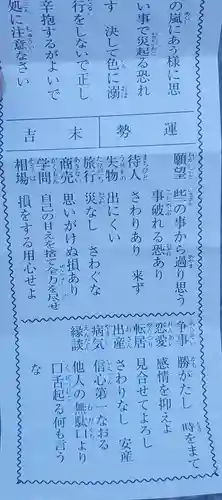 の嵐にあう様に思
い事で災起る恐れ
す 決して色に溺
行をしないで正し
辛抱するがよいで
処に注意なさい
運勢
末吉
願望 些の事から過り思う
事破れる恐あり
待人 さわりあり 来ず
失物 出にくい
旅行 災なし さわぐな
商売 思いがけぬ損あり
学問 自己の甘えを捨て全力を尽せ
相場 損をする用心せよ
争事 勝がたし 時をまて
恋愛 感情を抑えよ
転居 見合せてよろし
出産 さわりなし 安産
病気 信心第一なおる
縁談 他人の無駄口より
口舌起る何も言う
な